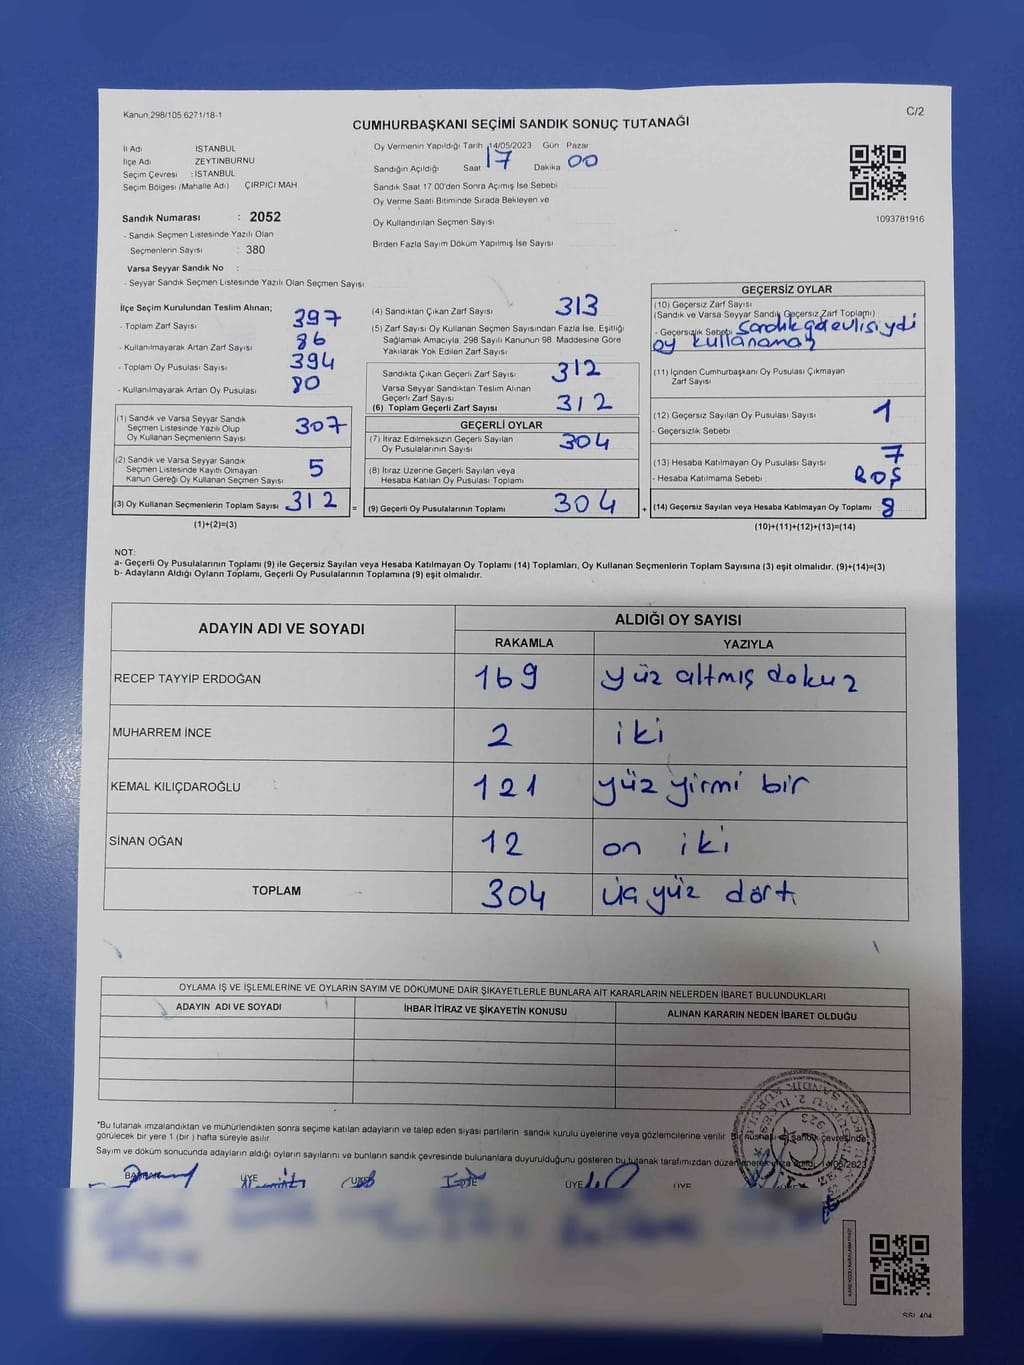 Kanun.298/105.6271/18-1
C/2
CUMHURBAŞKANI SEÇİMİ SANDIK SONUÇ TUTANAĞI
İl Adı İSTANBUL
İlçe Adı ZEYTİNBURNU
Seçim Çevresi : İSTANBUL
Seçim Bölgesi (Mahalle Adı) ÇIRPICI MAH
Sandık Numarası : 2052
- Sandık Seçmen Listesinde Yazılı Olan
Seçmenlerin Sayısı : 380
Varsa Seyyar Sandık No :
- Seyyar Sandık Seçmen Listesinde Yazılı Olan Seçmen Sayısı
Oy Vermenin Yapıldığı Tarih 14/05/2023 Gün : Pazar
Sandığın Açıldığı Saat 17 Dakika 00
Sandık Saat 17.00'den Sonra Açımış İse Sebebi
Oy Verme Saati Bitiminde Sırada Bekleyen ve
Oy Kullandırılan Seçmen Sayısı
Birden Fazla Sayım Döküm Yapılmış İse Sayısı
1093781916
İlçe Seçim Kurulundan Teslim Alınan;
- Toplam Zarf Sayısı 397
- Kullanılmayarak Artan Zarf Sayısı 86
- Toplam Oy Pusulası Sayısı 394
- Kullanılmayarak Artan Oy Pusulası 80
(1) Sandık ve Varsa Seyyar Sandık
Seçmen Listesinde Yazılı Olup
Oy Kullanan Seçmenlerin Sayısı 307
(2) Sandık ve Varsa Seyyar Sandık
Seçmen Listesinde Kayıtlı Olmayan
Kanun Gereği Oy Kullanan Seçmen Sayısı 5
(3) Oy Kullanan Seçmenlerin Toplam Sayısı 312 =
(1)+(2)=(3)
(4) Sandıktan Çıkan Zarf Sayısı 313
(5) Zarf Sayısı Oy Kullanan Seçmen Sayısından Fazla İse, Eşitliği
Sağlamak Amacıyla, 298 Sayılı Kanunun 98 Maddesine Göre
Yakılarak Yok Edilen Zarf Sayısı
Sandıkta Çıkan Geçerli Zarf Sayısı 312
Varsa Seyyar Sandıktan Teslim Alınan
Geçerli Zarf Sayısı
(6) Toplam Geçerli Zarf Sayısı 312
GEÇERLİ OYLAR
(7) İtiraz Edilmeksizin Geçerli Sayılan
Oy Pusulalarının Sayısı 304
(8) İtiraz Üzerine Geçerli Sayılan veya
Hesaba Katılan Oy Pusulası Toplamı
(9) Geçerli Oy Pusulalarının Toplamı 304 +
GEÇERSİZ OYLAR
(10) Geçersiz Zarf Sayısı
(Sandık ve Varsa Seyyar Sandık Geçersiz Zarf Toplamı)
- Geçersizlik Sebebi Sandık görevlisiydi
oy kullanamaz
(11) İçinden Cumhurbaşkanı Oy Pusulası Çıkmayan
Zarf Sayısı
(12) Geçersiz Sayılan Oy Pusulası Sayısı 1
- Geçersizlik Sebebi
(13) Hesaba Katılmayan Oy Pusulası Sayısı 7
- Hesaba Katılmama Sebebi BOŞ
(14) Geçersiz Sayılan veya Hesaba Katılmayan Oy Toplamı 8
(10)+(11)+(12)+(13)=(14)
NOT:
a- Geçerli Oy Pusulalarının Toplamı (9) ile Geçersiz Sayılan veya Hesaba Katılmayan Oy Toplamı (14) Toplamları, Oy Kullanan Seçmenlerin Toplam Sayısına (3) eşit olmalıdır. (9)+(14)=(3)
b- Adayların Aldığı Oyların Toplamı, Geçerli Oy Pusulalarının Toplamına (9) eşit olmalıdır.
ADAYIN ADI VE SOYADI ALDIĞI OY SAYISI
RAKAMLA YAZIYLA
RECEP TAYYİP ERDOĞAN 169 yüz altmış dokuz
MUHARREM İNCE 2 iki
KEMAL KILIÇDAROĞLU 121 yüz yirmi bir
SİNAN OĞAN 12 on iki
TOPLAM 304 üç yüz dört
OYLAMA İŞ VE İŞLEMLERİNE VE OYLARIN SAYIM VE DÖKÜMÜNE DAİR ŞİKAYETLERLE BUNLARA AİT KARARLARIN NELERDEN İBARET BULUNDUKLARI
ADAYIN ADI VE SOYADI İHBAR İTİRAZ VE ŞİKAYETİN KONUSU ALINAN KARARIN NEDEN İBARET OLDUĞU
*Bu tutanak imzalandıktan ve mühürlendikten sonra seçime katılan adayların ve talep eden siyasi partilerin sandık kurulu üyelerine veya gözlemcilerine verilir. Bir nüshası da sandık çevresinde
görülecek bir yere 1 (bir) hafta süreyle asılır
Sayım ve döküm sonucunda adayların aldığı oyların sayılarını ve bunların sandık çevresinde bulunanlara duyurulduğunu gösteren bu tutanak tarafımızdan düzenlenerek imza edildi. 14/05/2023
BAŞKAN ÜYE ÜYE ÜYE ÜYE ÜYE